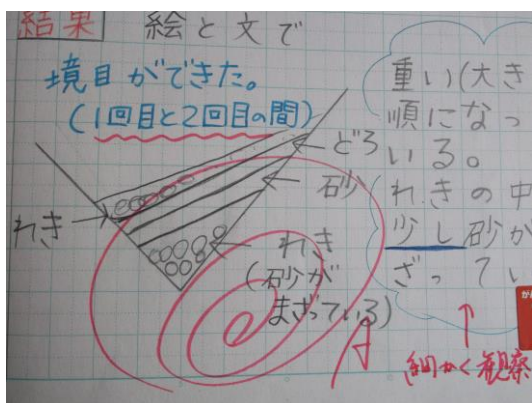 結果 絵と文で
境目ができた。
(1回目と2回目の間)
どろ
砂
れき
れき
(砂が
まざっている)
重い(大き
順になっ
いる。
(れきの中
少し砂が
ざってい
細かく観察